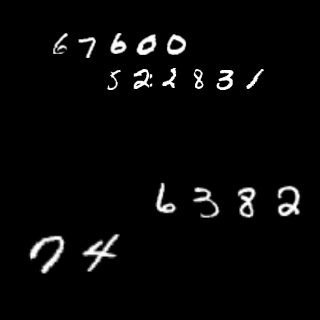 67600
522831
6382
74